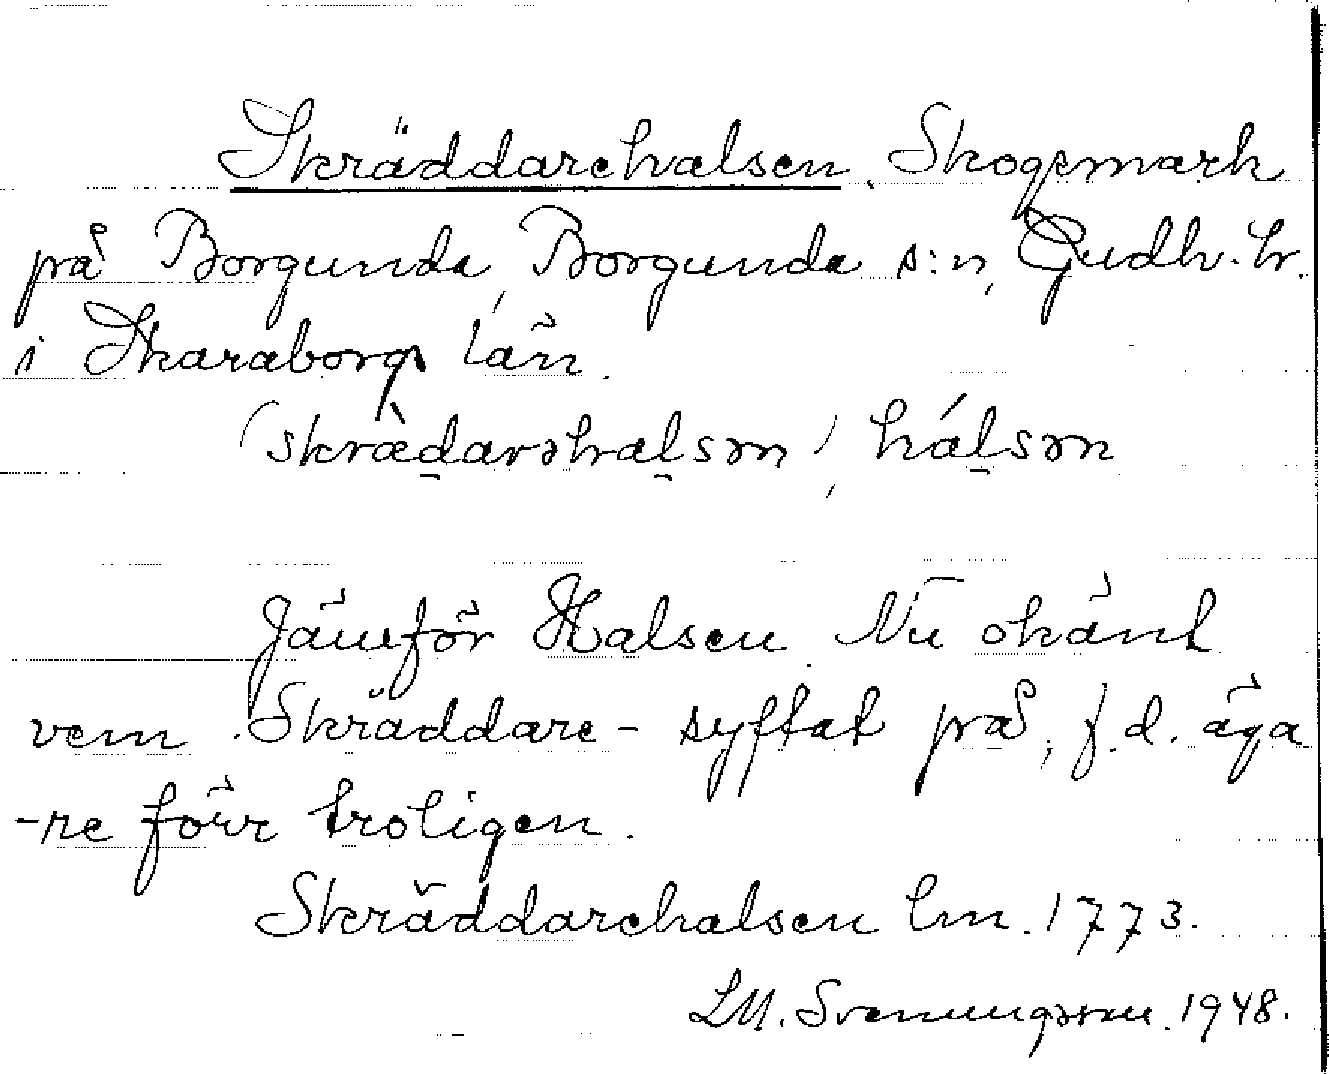 Skräddarehalsen. Skogsmark
på Borgunda, Borgunda s:n, Gudh. hr.
i Skaraborgs län.
(skræ̀darəhalsən), hálsən
Jämför Halsen. Nu okänt
vem Skräddare- syftat på, f.d. äga
-re förr troligen.
Skräddarehalsen lm. 1773.
LM. Svenungsson. 1948.